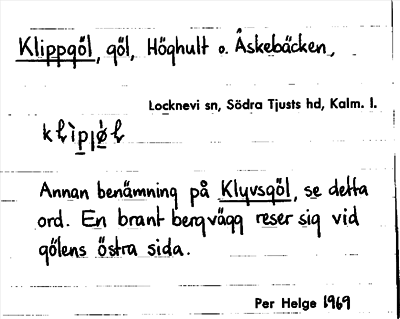 Klippgöl, göl, Höghult o. Åskebäcken,
Locknevi sn, Södra Tjusts hd, Kalm. l.
Annan benämning på Klyvsgöl, se detta
ord. En brant bergvägg reser sig vid
gölens östra sida.
Per Helge 1969